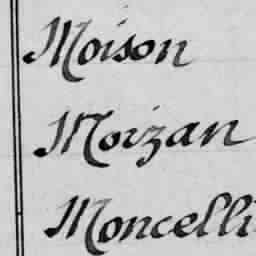 Moison
Moizan
Moncelli